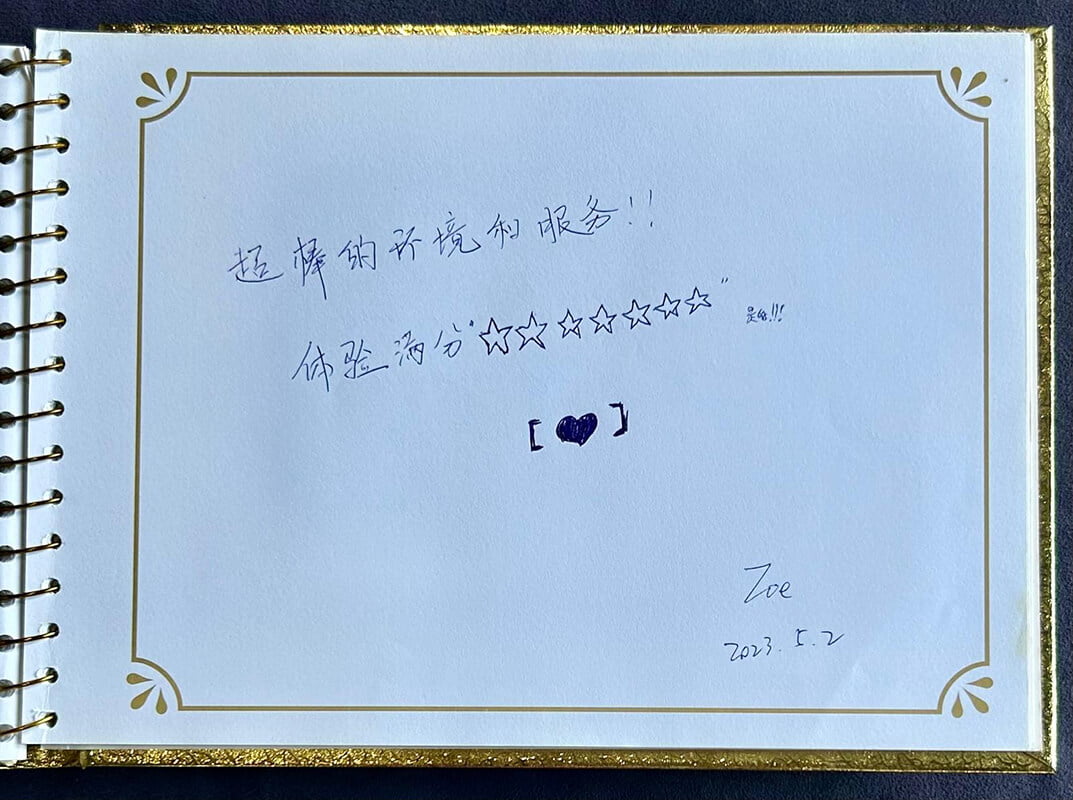 超棒的环境和服务!!
体验满分“☆☆☆☆☆☆☆” !!!
[♥]
Zoe
2023.5.2